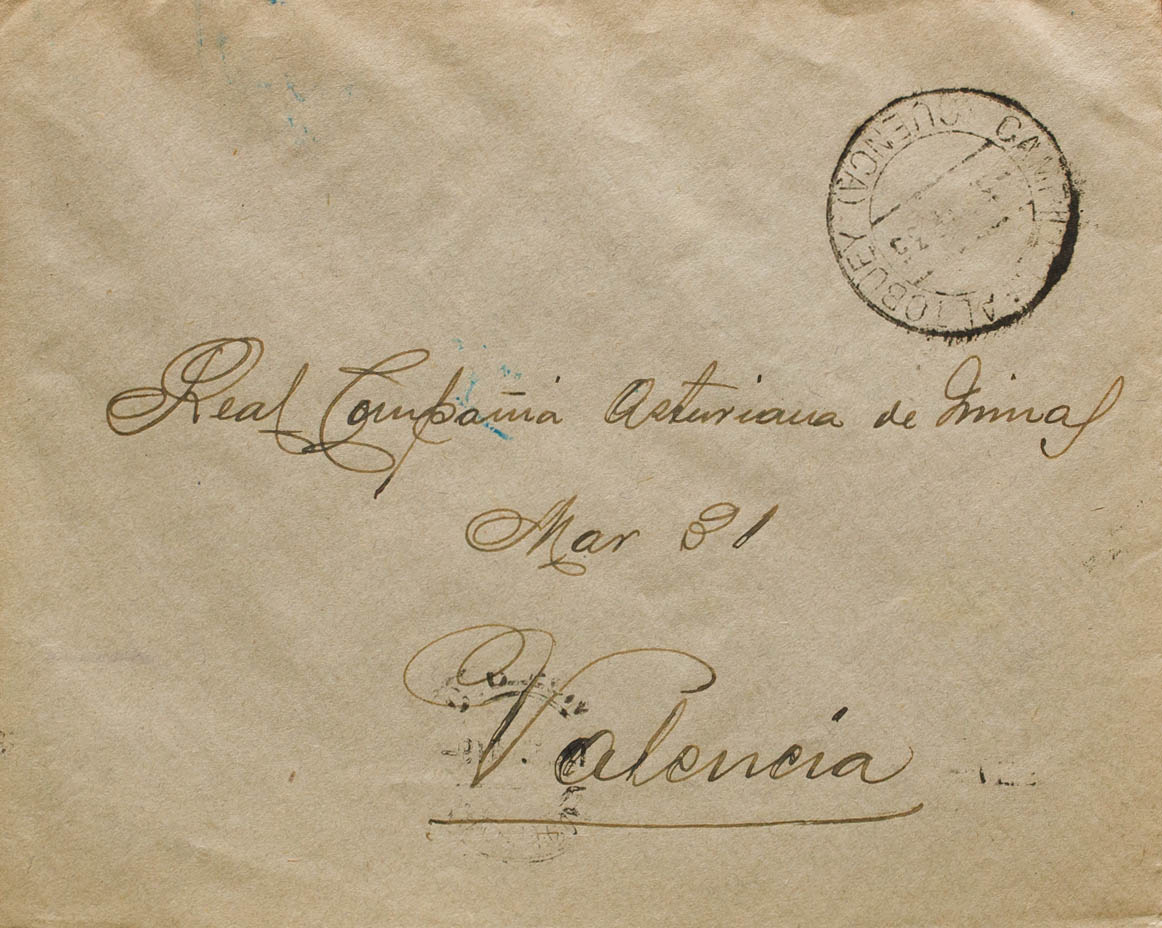 CAMPILLO DE ALTOBUEY (CUENCA)
Real Compañia Asturiana de Minas
Mar 31
Valencia